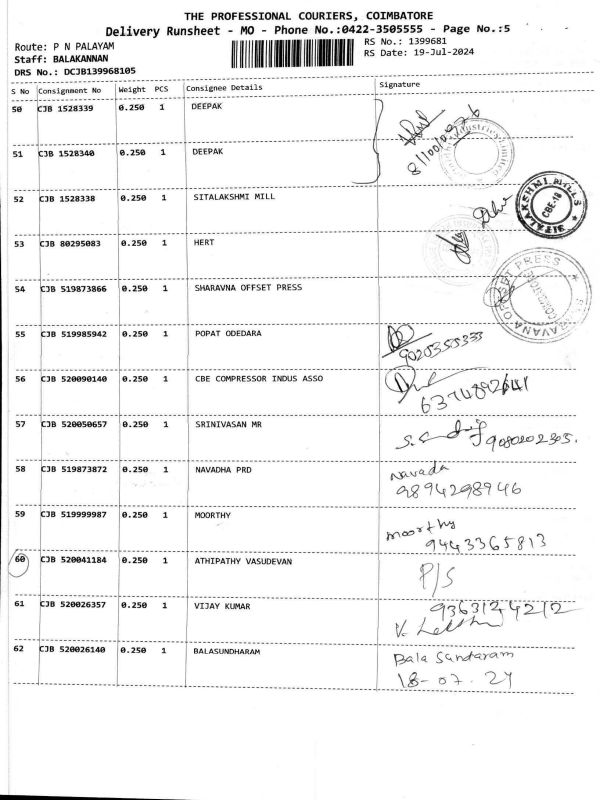 THE PROFESSIONAL COURIERS, COIMBATORE
Delivery Runsheet - MO - Phone No.:0422-3505555 - Page No.:5
Route: P N PALAYAM
RS No.: 1399681
Staff: BALAKANNAN
RS Date: 19-Jul-2024
DRS No.: DCJB139968105
S No Consignment No Weight PCS Consignee Details Signature
50 CJB 1528339 0.250 1 DEEPAK
51 CJB 1528340 0.250 1 DEEPAK
52 CJB 1528338 0.250 1 SITALAKSHMI MILL
SITALAKSHMI MILLS
CBE-18
53 CJB 80295083 0.250 1 HERT
54 CJB 519873866 0.250 1 SHARAVNA OFFSET PRESS
OFFSET PRESS
55 CJB 519985942 0.250 1 POPAT ODEDARA
9025355333
56 CJB 520090140 0.250 1 CBE COMPRESSOR INDUS ASSO
57 CJB 520050657 0.250 1 SRINIVASAN MR
58 CJB 519873872 0.250 1 NAVADHA PRD
Navada
9894298946
59 CJB 519999987 0.250 1 MOORTHY
moorthy
9443365813
60 CJB 520041184 0.250 1 ATHIPATHY VASUDEVAN
P/S
61 CJB 520026357 0.250 1 VIJAY KUMAR
9363124212
62 CJB 520026140 0.250 1 BALASUNDHARAM
Bala Sundaram
18-07.24